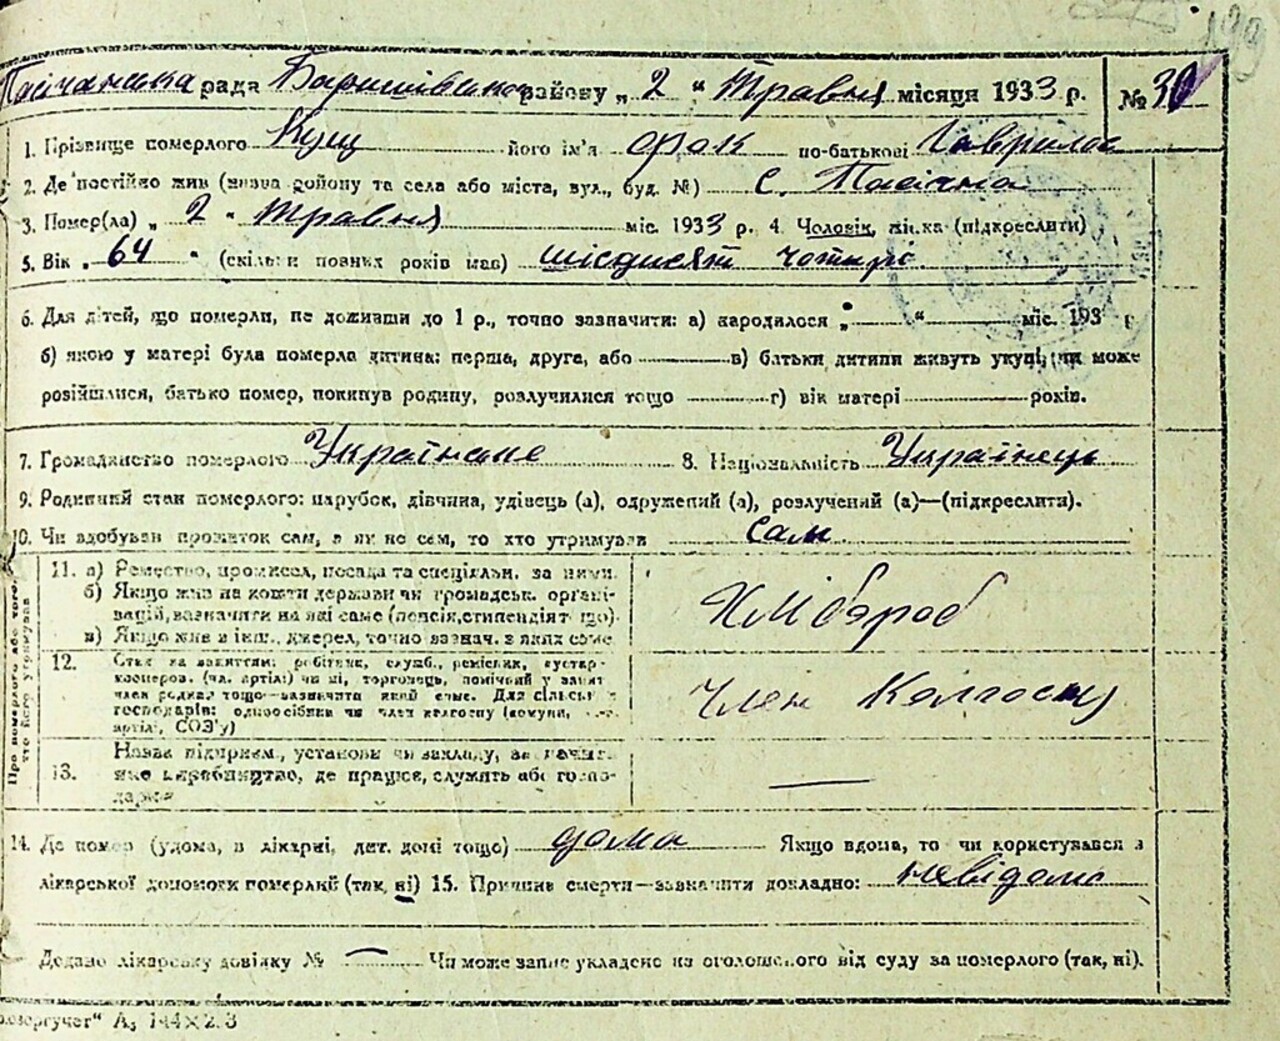 199
Пасічанська рада Баришівського району „ 2 “ Травня місяця 1933 р. № 30
1. Прізвище померлого Кущ його ім'я Фок по-батькові Гаврилов
2. Де постійно жив (назва району та села або міста, вул., буд. №) с. Пасічна
3. Помер(ла) „ 2 “ Травня міс. 1933 р. 4. Чоловік, жінка (підкреслити)
5. Вік „ 64 “ (скільки повних років мав) шісдисят чотирі
6. Для дітей, що померли, не доживши до 1 р., точно зазначити: а) народилося „ “ міс. 193 р.
б) якою у матері була померла дитина: перша, друга, або в) батьки дитини живуть укупі, чи може
розійшлися, батько помер, покинув родину, розлучилися тощо г) вік матері років.
7. Громадянство померлого Українське 8. Національність Українець
9. Родинний стан померлого: парубок, дівчина, удівець (а), одружений (а), розлучений (а)—(підкреслити).
10. Чи здобував прожиток сам, а як не сам, то хто утримував сам
Про померлого або того,
хто його утримував
11. а) Ремество, промисел, посада та спеціяльн. за ними.
б) Якщо жив на кошти держави чи громадськ. органі-
зацій, зазначити на які саме (пенсія, стипендія тощо).
в) Якщо жив з інш. джерел, точно зазнач. з яких саме
Хлібороб
12. Стан за заняттям: робітник, служб., ремісник, кустар-
кооперов. (чл. артілі) чи ні, торговець, помічний у занят.
член родини тощо—зазначити який саме. Для сільськ.
господарів: одноосібник чи член колгоспу (комуни, с.-г.
артілі, СОЗ'у)
Член Колгоспу
13. Назва підприєм., установи чи закладу, зазначити
яке виробництво, де працює, служить або госпо-
дарює
—
14. Де помер (удома, в лікарні, дит. домі тощо) дома Якщо вдома, то чи користувався з
лікарської допомоги померлий (так, ні) 15. Причина смерти—зазначити докладно: невідома
Додано лікарську довідку № — Чи може запис укладено на оголошеного від суду за померлого (так, ні).
А₅ 144×2.3